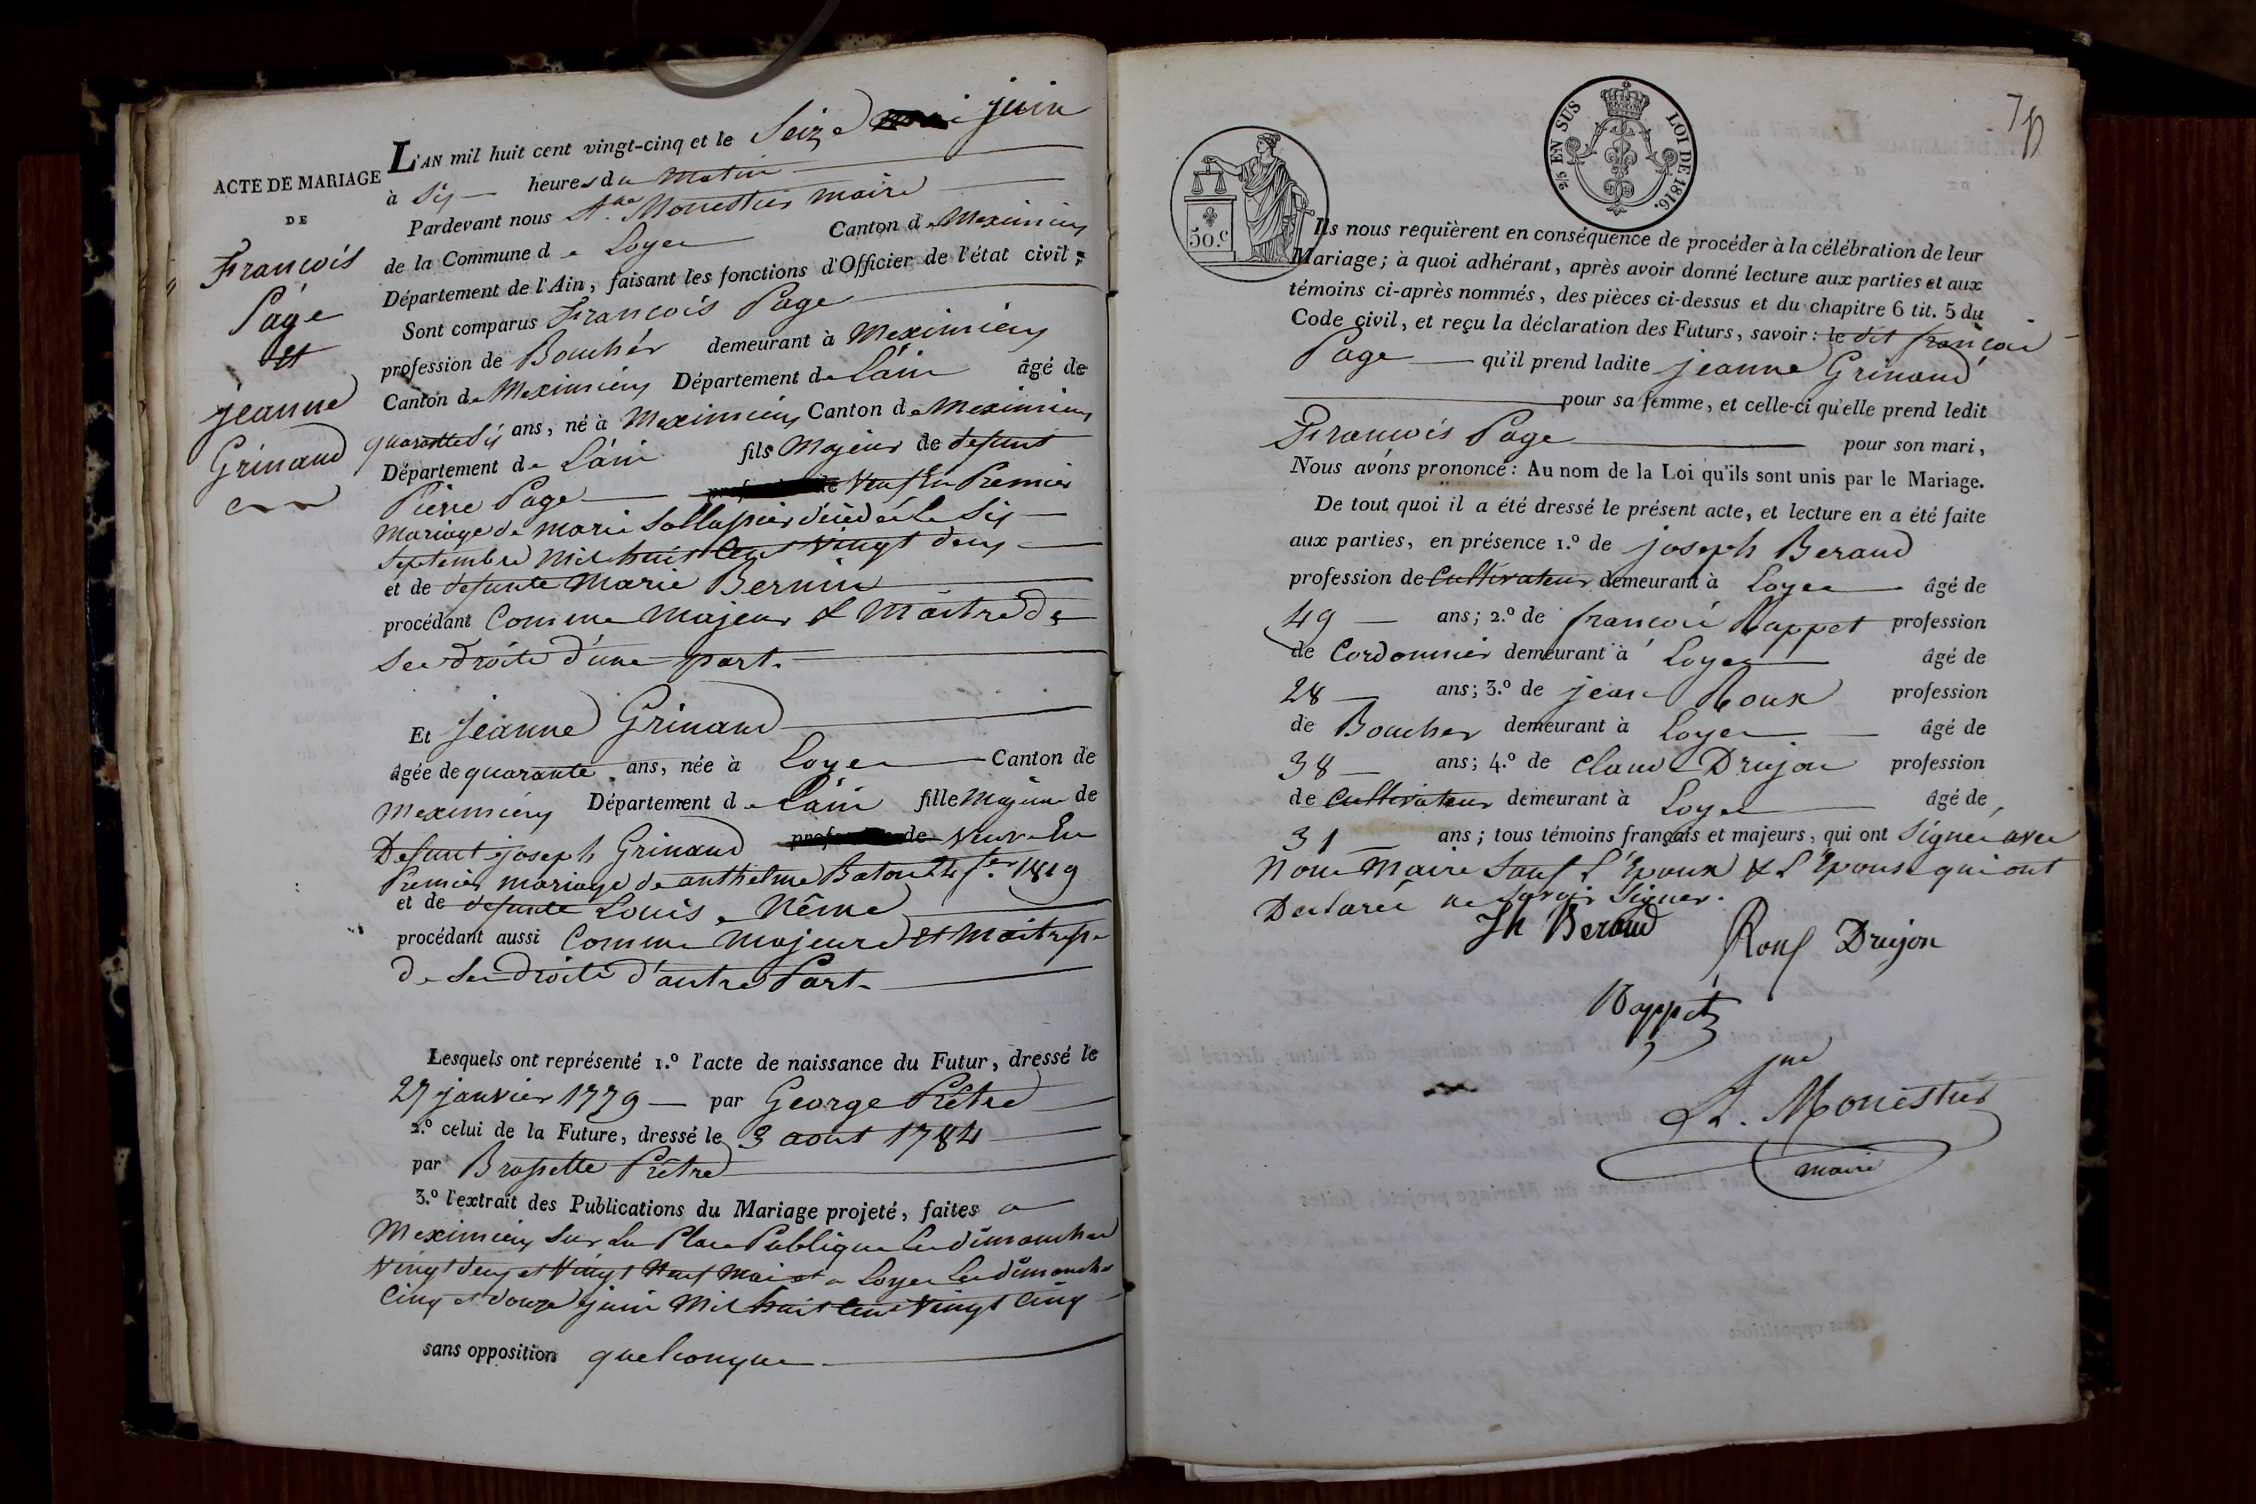 ACTE DE MARIAGE
DE
François
Page
et
jeanne
Grinand
L'AN mil huit cent vingt-cinq et le Seize juin
à Six heures du Matin
Pardevant nous Monestier maire
de la Commune de Loyes Canton de Meximieux
Département de l'Ain, faisant les fonctions d'Officier de l'état civil;
Sont comparus François Page
profession de Bouchér demeurant à Meximieux
Canton de Meximieux Département de L'ain âgé de
quarante Six ans, né à Meximieux Canton de Meximieux
Département de L'ain fils Majeur de defunt
Pierre Page Veuf En Premier
Mariage de marie décédée le Six
Septembre Mil huit Cent Vingt deux
et de defunte Marie Bernin
procédant Comme Majeur & Maitre de
Ses droits d'une part.
Et jeanne Grinand
âgée de quarante ans, née à Loyes Canton de
Meximieux Département de L'ain fille Majeure de
Defunt joseph Grinand Veuve En
Premier mariage de anthelme Baton 1819
et de defunte Louise Nême
procédant aussi Comme Majeure et Maitresse
de Ses droits d'autre Part.
Lesquels ont représenté 1.º l'acte de naissance du Futur, dressé le
27 janvier 1779 par George Prêtre
2.º celui de la Future, dressé le 3 aout 1784
par Brossette Prêtre
3.º l'extrait des Publications du Mariage projeté, faites a
Meximieux Sur La Place Publique Les dimanches
Vingt deux et Vingt Neuf Mai et a Loyes Les dimanches
Cinq et douze juin Mil huit Cent Vingt Cinq
sans opposition quelconque
50.c
2/5 EN SUS LOI DE 1816.
Ils nous requièrent en conséquence de procéder à la célébration de leur
Mariage; à quoi adhérant, après avoir donné lecture aux parties et aux
témoins ci-après nommés, des pièces ci-dessus et du chapitre 6 tit. 5 du
Code civil, et reçu la déclaration des Futurs, savoir: le dit françois
Page qu'il prend ladite jeanne Grinand
pour sa femme, et celle-ci qu'elle prend ledit
François Page pour son mari,
Nous avons prononcé: Au nom de la Loi qu'ils sont unis par le Mariage.
De tout quoi il a été dressé le présent acte, et lecture en a été faite
aux parties, en présence 1.º de joseph Beraud
profession de Cultivateur demeurant à Loyes âgé de
49 ans; 2.º de françois Nappet profession
de Cordonnier demeurant à Loyes âgé de
28 ans; 3.º de jean Roux profession
de Boucher demeurant à Loyes âgé de
38 ans; 4.º de Claude Drujon profession
de Cultivateur demeurant à Loyes âgé de
31 ans; tous témoins français et majeurs, qui ont Signé avec
Nous Maire Sauf L'Epoux & L'Epouse qui ont
Declaré ne Savoir Signer.
Jh Beraud
Roux Drujon
Nappet
Monestier
maire